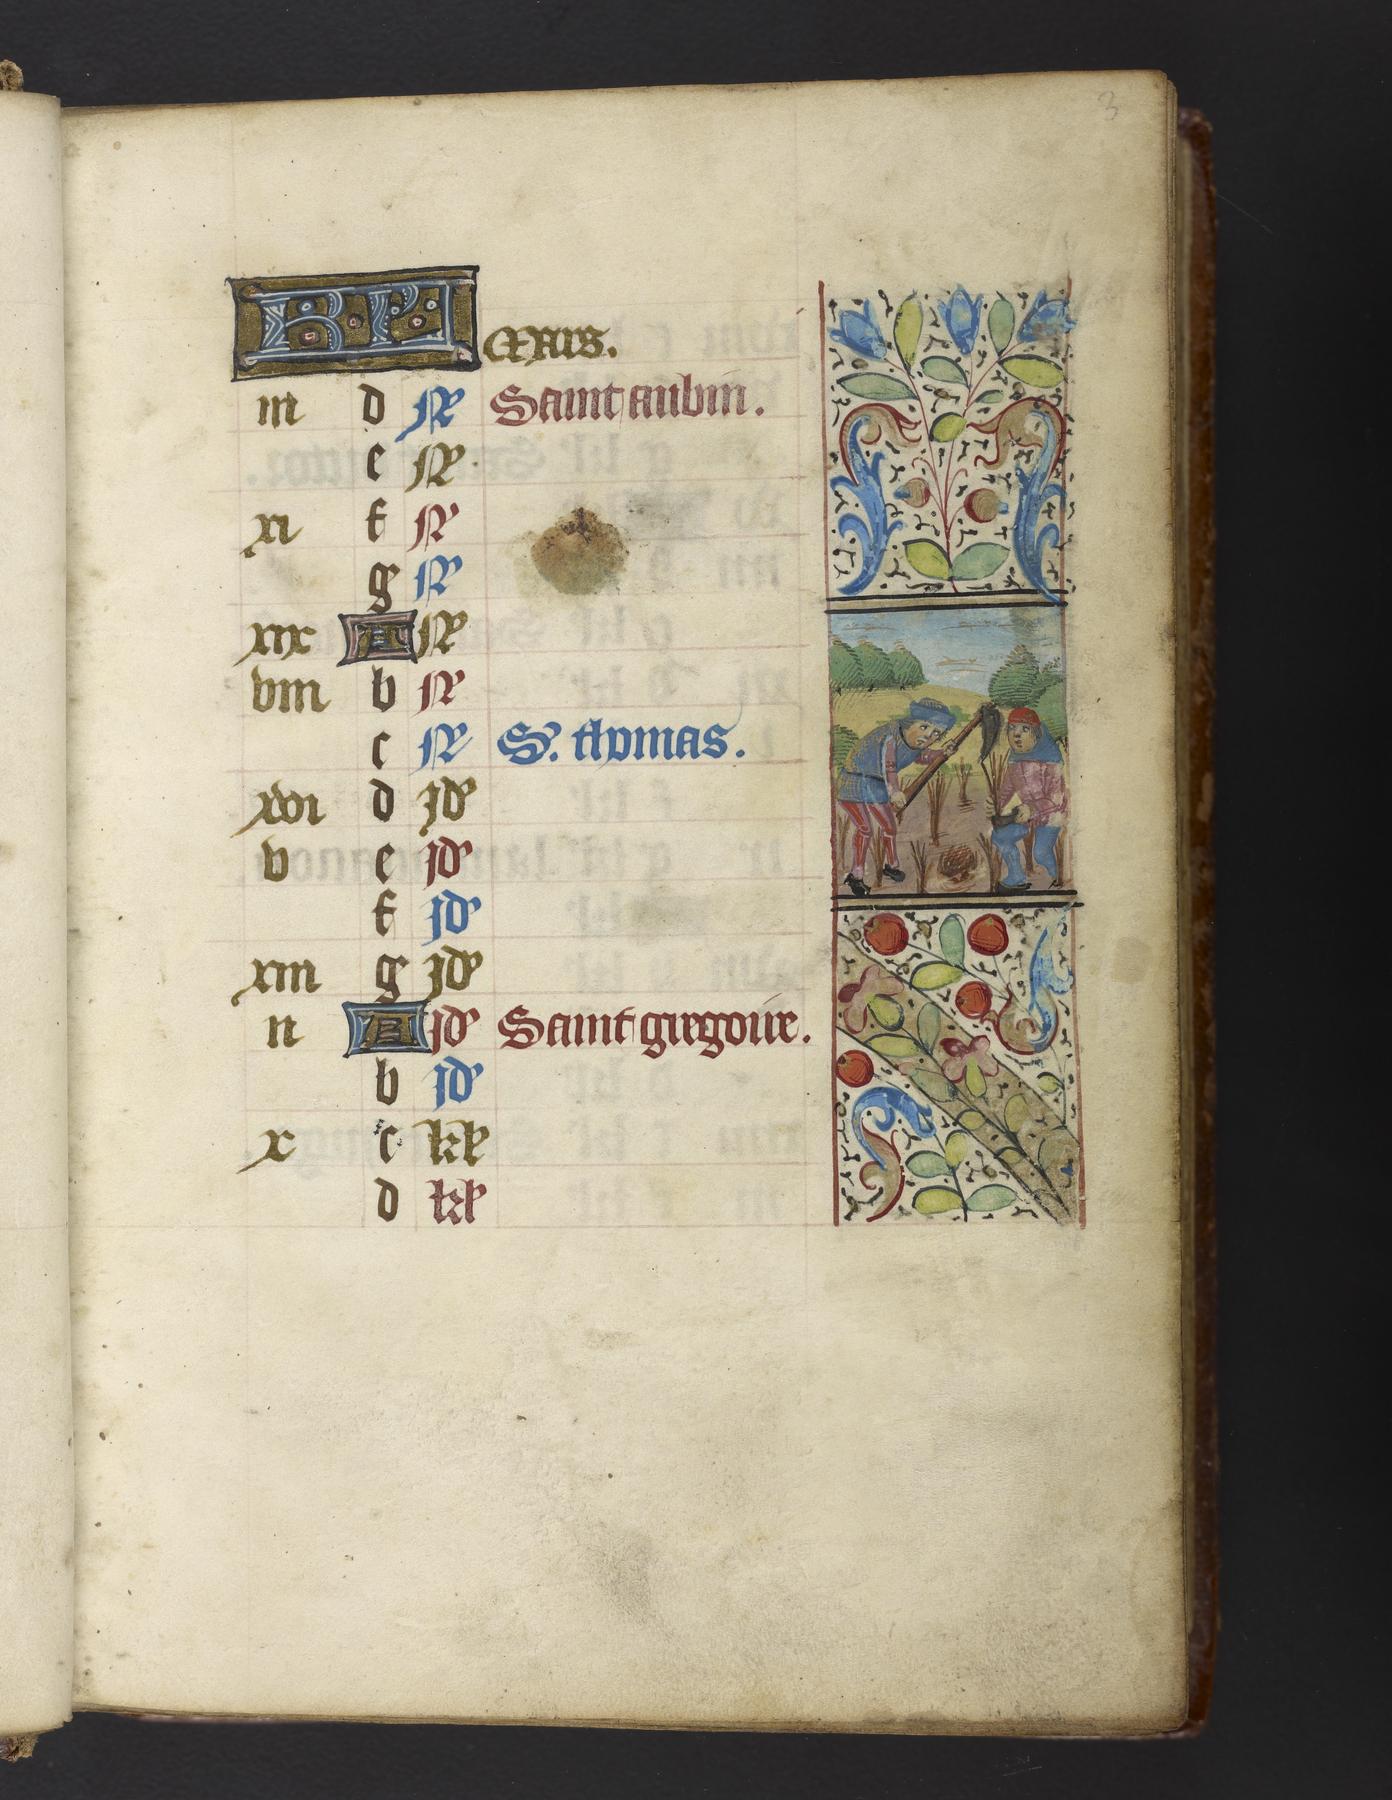 3
KL Mars.
iii d N Saint aubin.
e N
xi f N
g N
xix A N
viii b N
c N S. thomas.
xvi d id
v e id
f id
xiii g id
ii A id Saint gregoire.
b id
x c kl
d kl